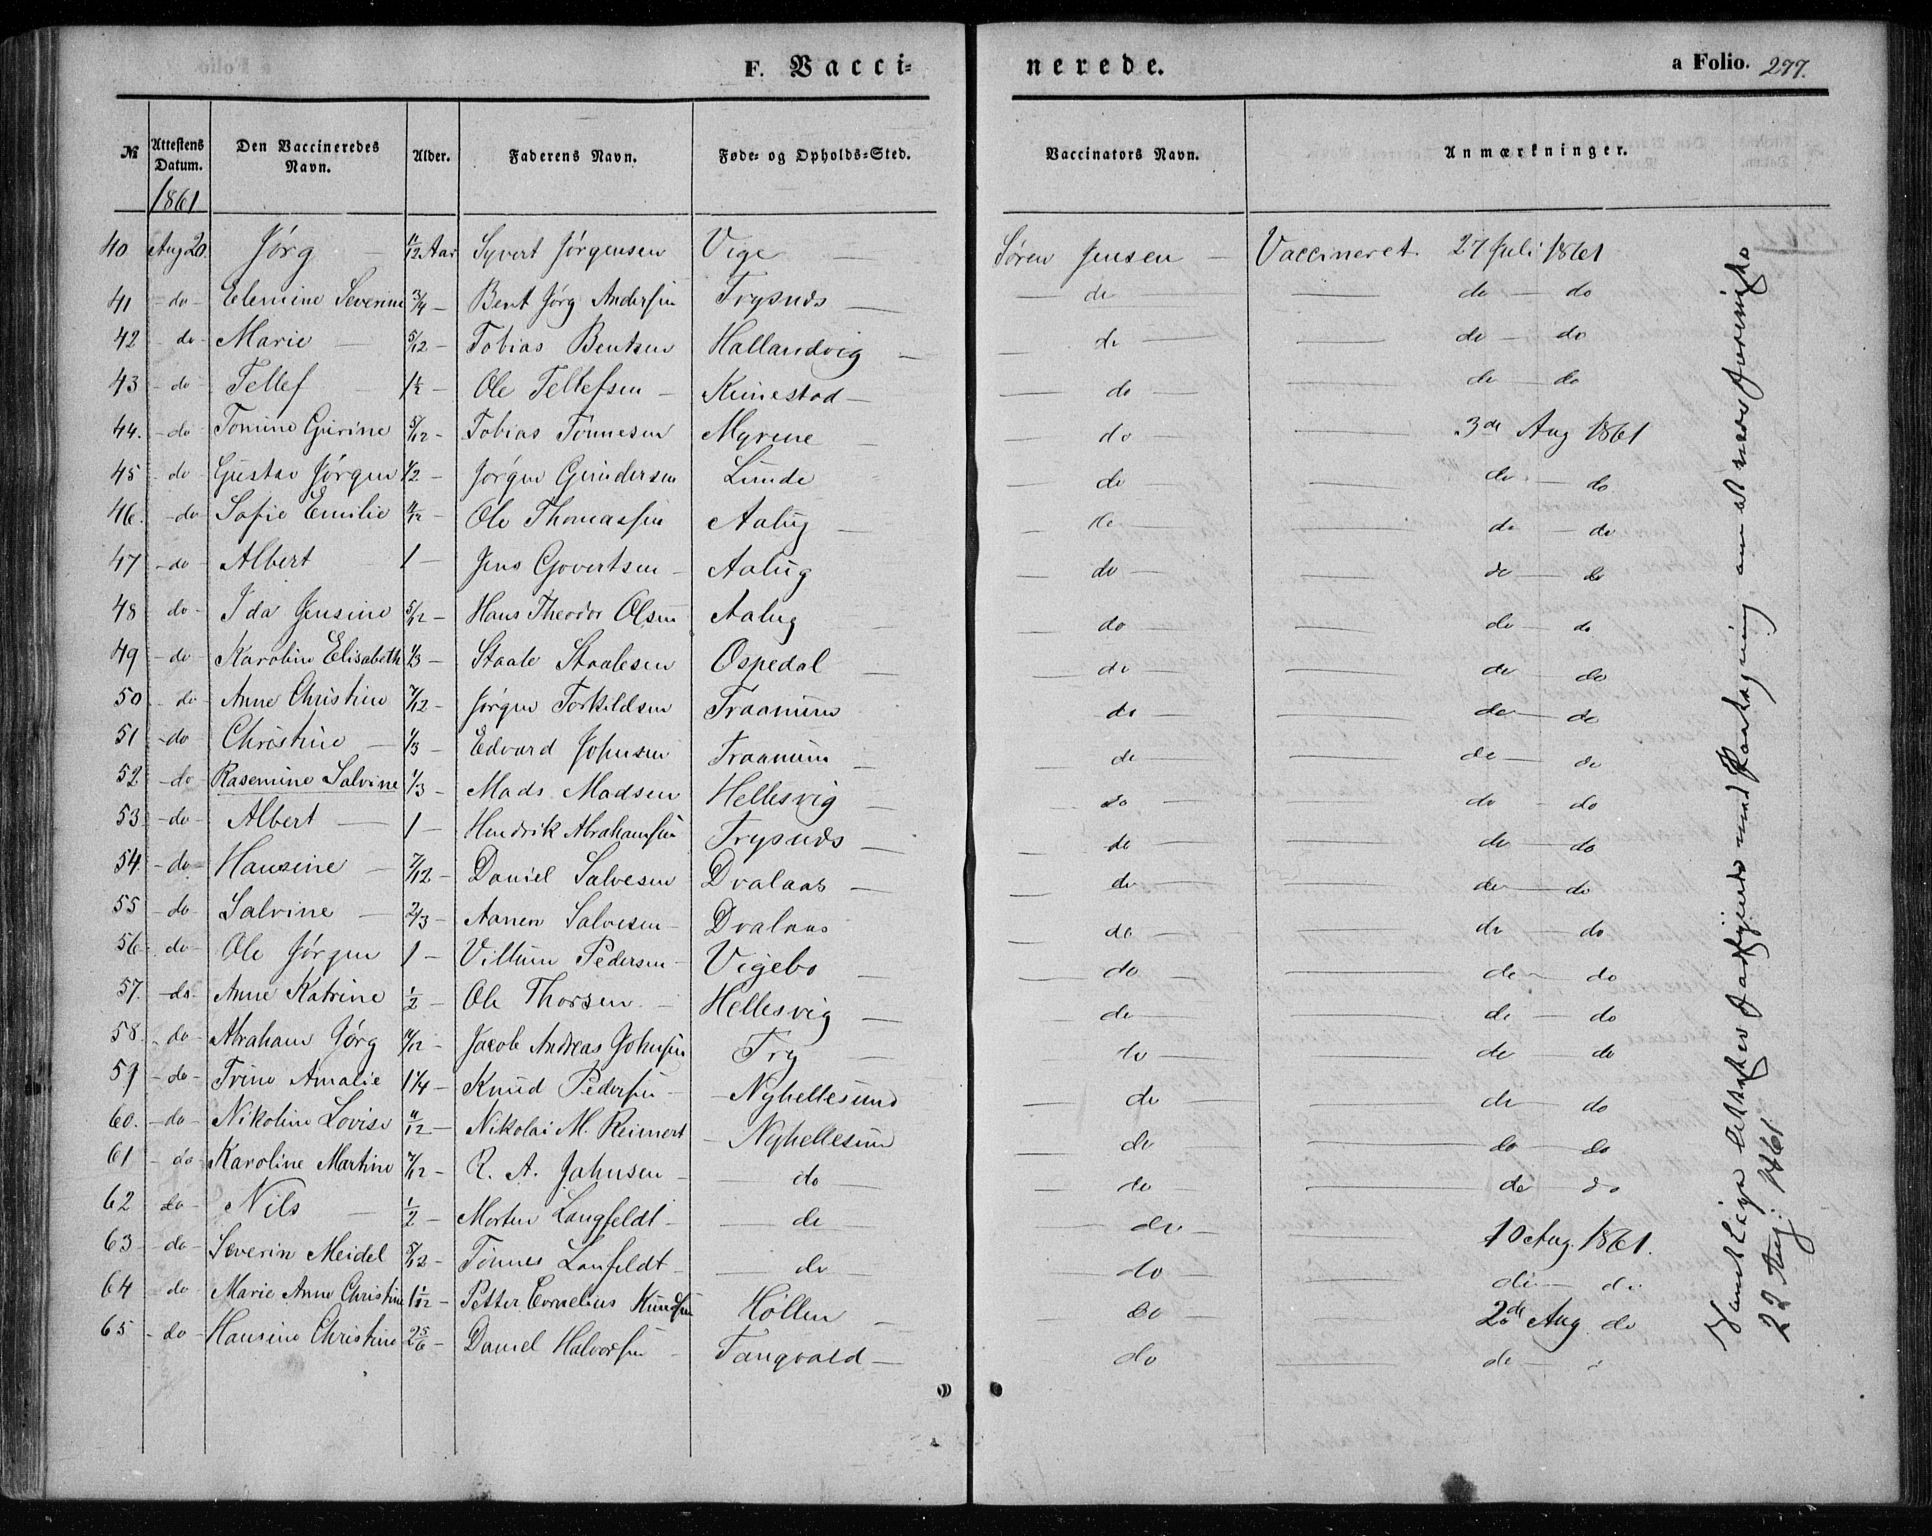 F. Vacci-
nerede.
a Folio. 277.
№
Attestens Datum.
Den Vaccineredes Navn.
Alder.
Faderens Navn.
Føde- og Opholds-Sted.
Vaccinators Navn.
Anmærkninger.
1861
40 Aug 20. Jørg — 11/12 Aar Syvert Jørgensen Vige — Søren Jensen — Vaccineret 27 Juli 1861
41 - do - Elemine Severine 3/4 - Bent Jørg Andersen Trysnes — do — do — do
42 - do - Marie — 5/12 - Tobias Bentsen Hallandvig — do — do — do
43 - do - Tellef 1½ - Ole Tellefsen - Kunestad — do — do — do
44. - do Tomine Gurine 5/12 - Tobias Tönnesen Myrene — do — 3de Aug 1861
45 - do Gustav Jørgen 1/2 - Jørgen Gundersen Lunde — do — do — do
46. - do Sofie Emilie Ole Thomassen Aalug — do — do — do
47 - do - Albert 1 — Jens Govertsen - Aalug — do — do — do
48 do - Ida Jensine 5/12 - Hans Theodor Olsen Aalug — do — do — do
49 - do Karoline Elisabeth 1/3 - Staale Staalesen Ospedal — do — do — do
50 - do - Anne Christine 7/12 - Jørgen Torkildsen Fraanum — do — do — do
51 - do Christine — 1/3 - Edvard Johnsen Fraanum — do — do — do
52 - do - Rasemine Salvine 1/3 - Mads Madsen Hellesvig — do — do - do
53 - do - Albert — 1 — Hendrik Abrahamsen Trysnes — do — do — do
54 - do - Hansine — 7/12 - Daniel Salvesen Dvalaas — do — do — do
55 - do - Salvine — 2/3 - Aanen Salvesen - Dvalaas — do — do — do
56 - do - Ole Jørgen 1 — Villum Pedersen - Vigebo — do — do — do
57. - do - Anne Katrine 1/2 - Ole Thorsen - Hellesvig — do — do — do
58. - do - Abraham Jørg 11/12 - Jacob Andreas Johnsen Try — do — do — do
59 - do - Trine Amalie 1¼ - Knud Pedersen - Nyhellesund — do — do — do
60. - do - Nikoline Lovise 11/12 - Nikolai M. Reimert - Nyhellesund — do — do — do
61 - do Karoline Martine 7/12 - R. A. Johnsen - do — do — do — do
62 do - Nils — 1/2 - Morten Langfeldt - — do — do — 10 Aug. 1861.
63 - do - Severin Meidel 5/12 - Tönnes Lanfeldt - do — do — do — do
64 - do Marie Anne Christine 1 1/12 - Petter Cornelius Knudsen Höllen — do — 2de Aug do
65 - do - Hansine Christine 2 5/6 - Daniel Halvorsen - Tangvald — do — do —
Samtlige Attester med Paategning om at være
22 Aug: 1861